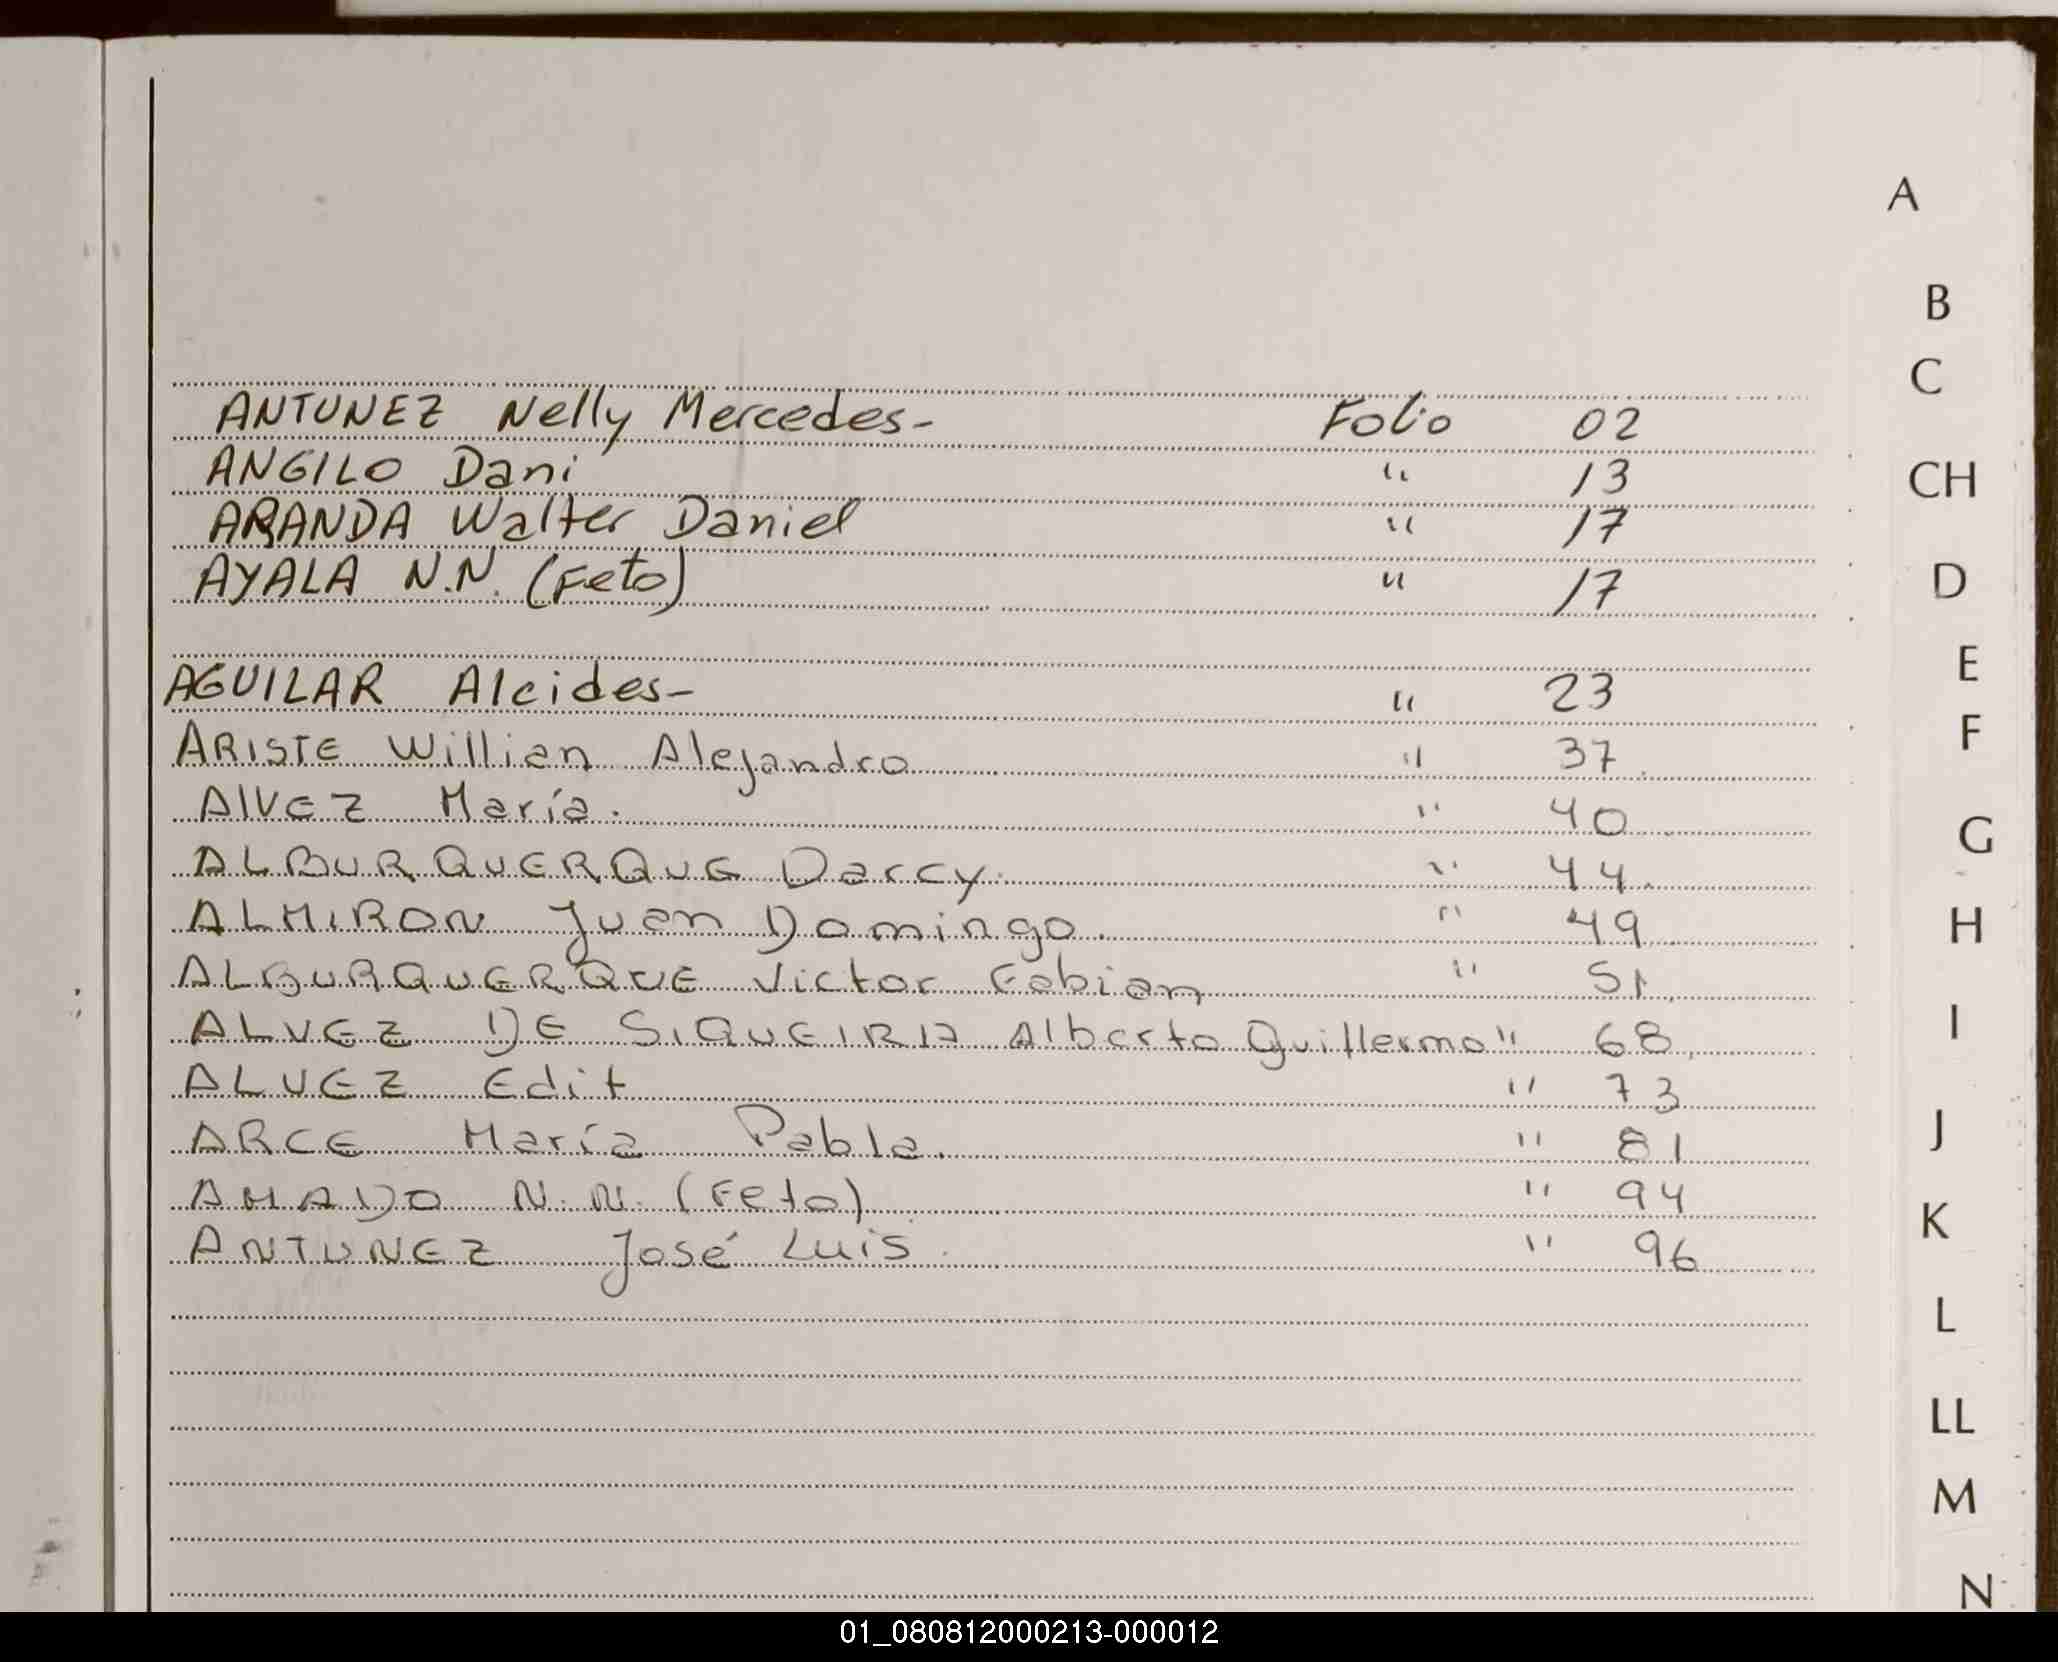 A
B
C
ANTUNEZ Nelly Mercedes- Folio 02
ANGILO Dani " 13
CH
ARANDA Walter Daniel " 17
AYALA N.N. (Feto) " 17
D
E
AGUILAR Alcides- " 23
F
ARISTE Willian Alejandro " 37
AlVEZ María. " 40
G
ALBURQUERQUE Darcy. " 44.
ALMIRON Juan Domingo. " 49
H
ALBURQUERQUE Victor Fabian " 51.
I
ALVEZ DE SIQUEIRA Alberto Guillermo " 68.
ALVEZ Edit " 73
J
ARCE María Pabla. " 81
AMADO N.N. (Feto) " 94
K
ANTUNEZ José Luis. " 96
L
LL
M
N
01_080812000213-000012